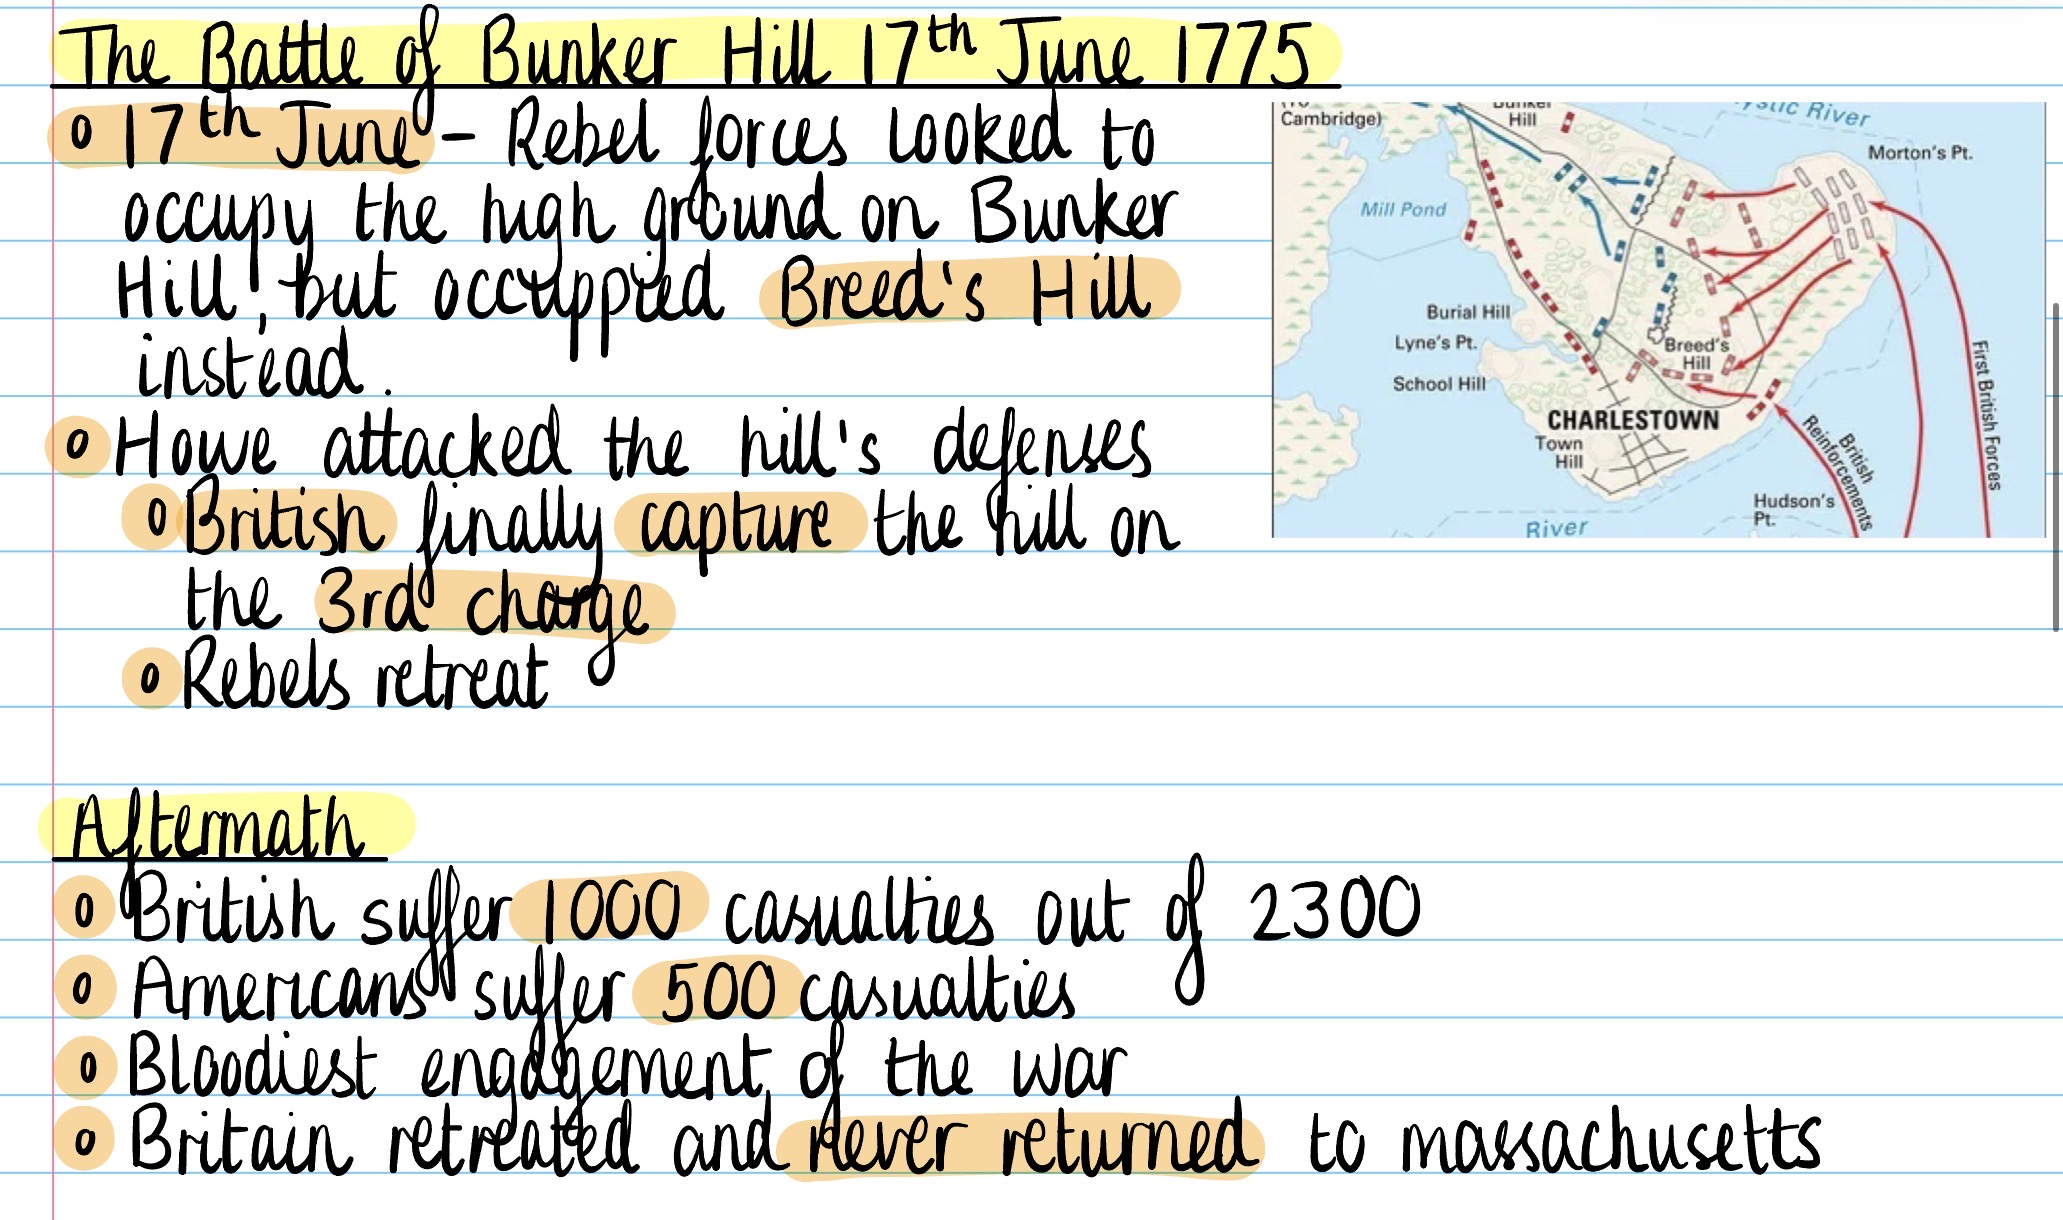 The Battle of Bunker Hill 17th June 1775
o 17th June - Rebel forces looked to
occupy the high ground on Bunker
Hill, but occuppied Breed's Hill
instead.
o Howe attacked the hill's defenses
o British finally capture the hill on
the 3rd charge
o Rebels retreat
(To
Cambridge)
Bunker
Hill
Mystic River
Morton's Pt.
Mill Pond
Burial Hill
Lyne's Pt.
School Hill
Breed's
Hill
CHARLESTOWN
Town
Hill
First British Forces
British
Reinforcements
Hudson's
Pt.
River
Aftermath
o British suffer 1000 casualties out of 2300
o Americans suffer 500 casualties
o Bloodiest engagement of the war
o Britain retreated and never returned to massachusetts